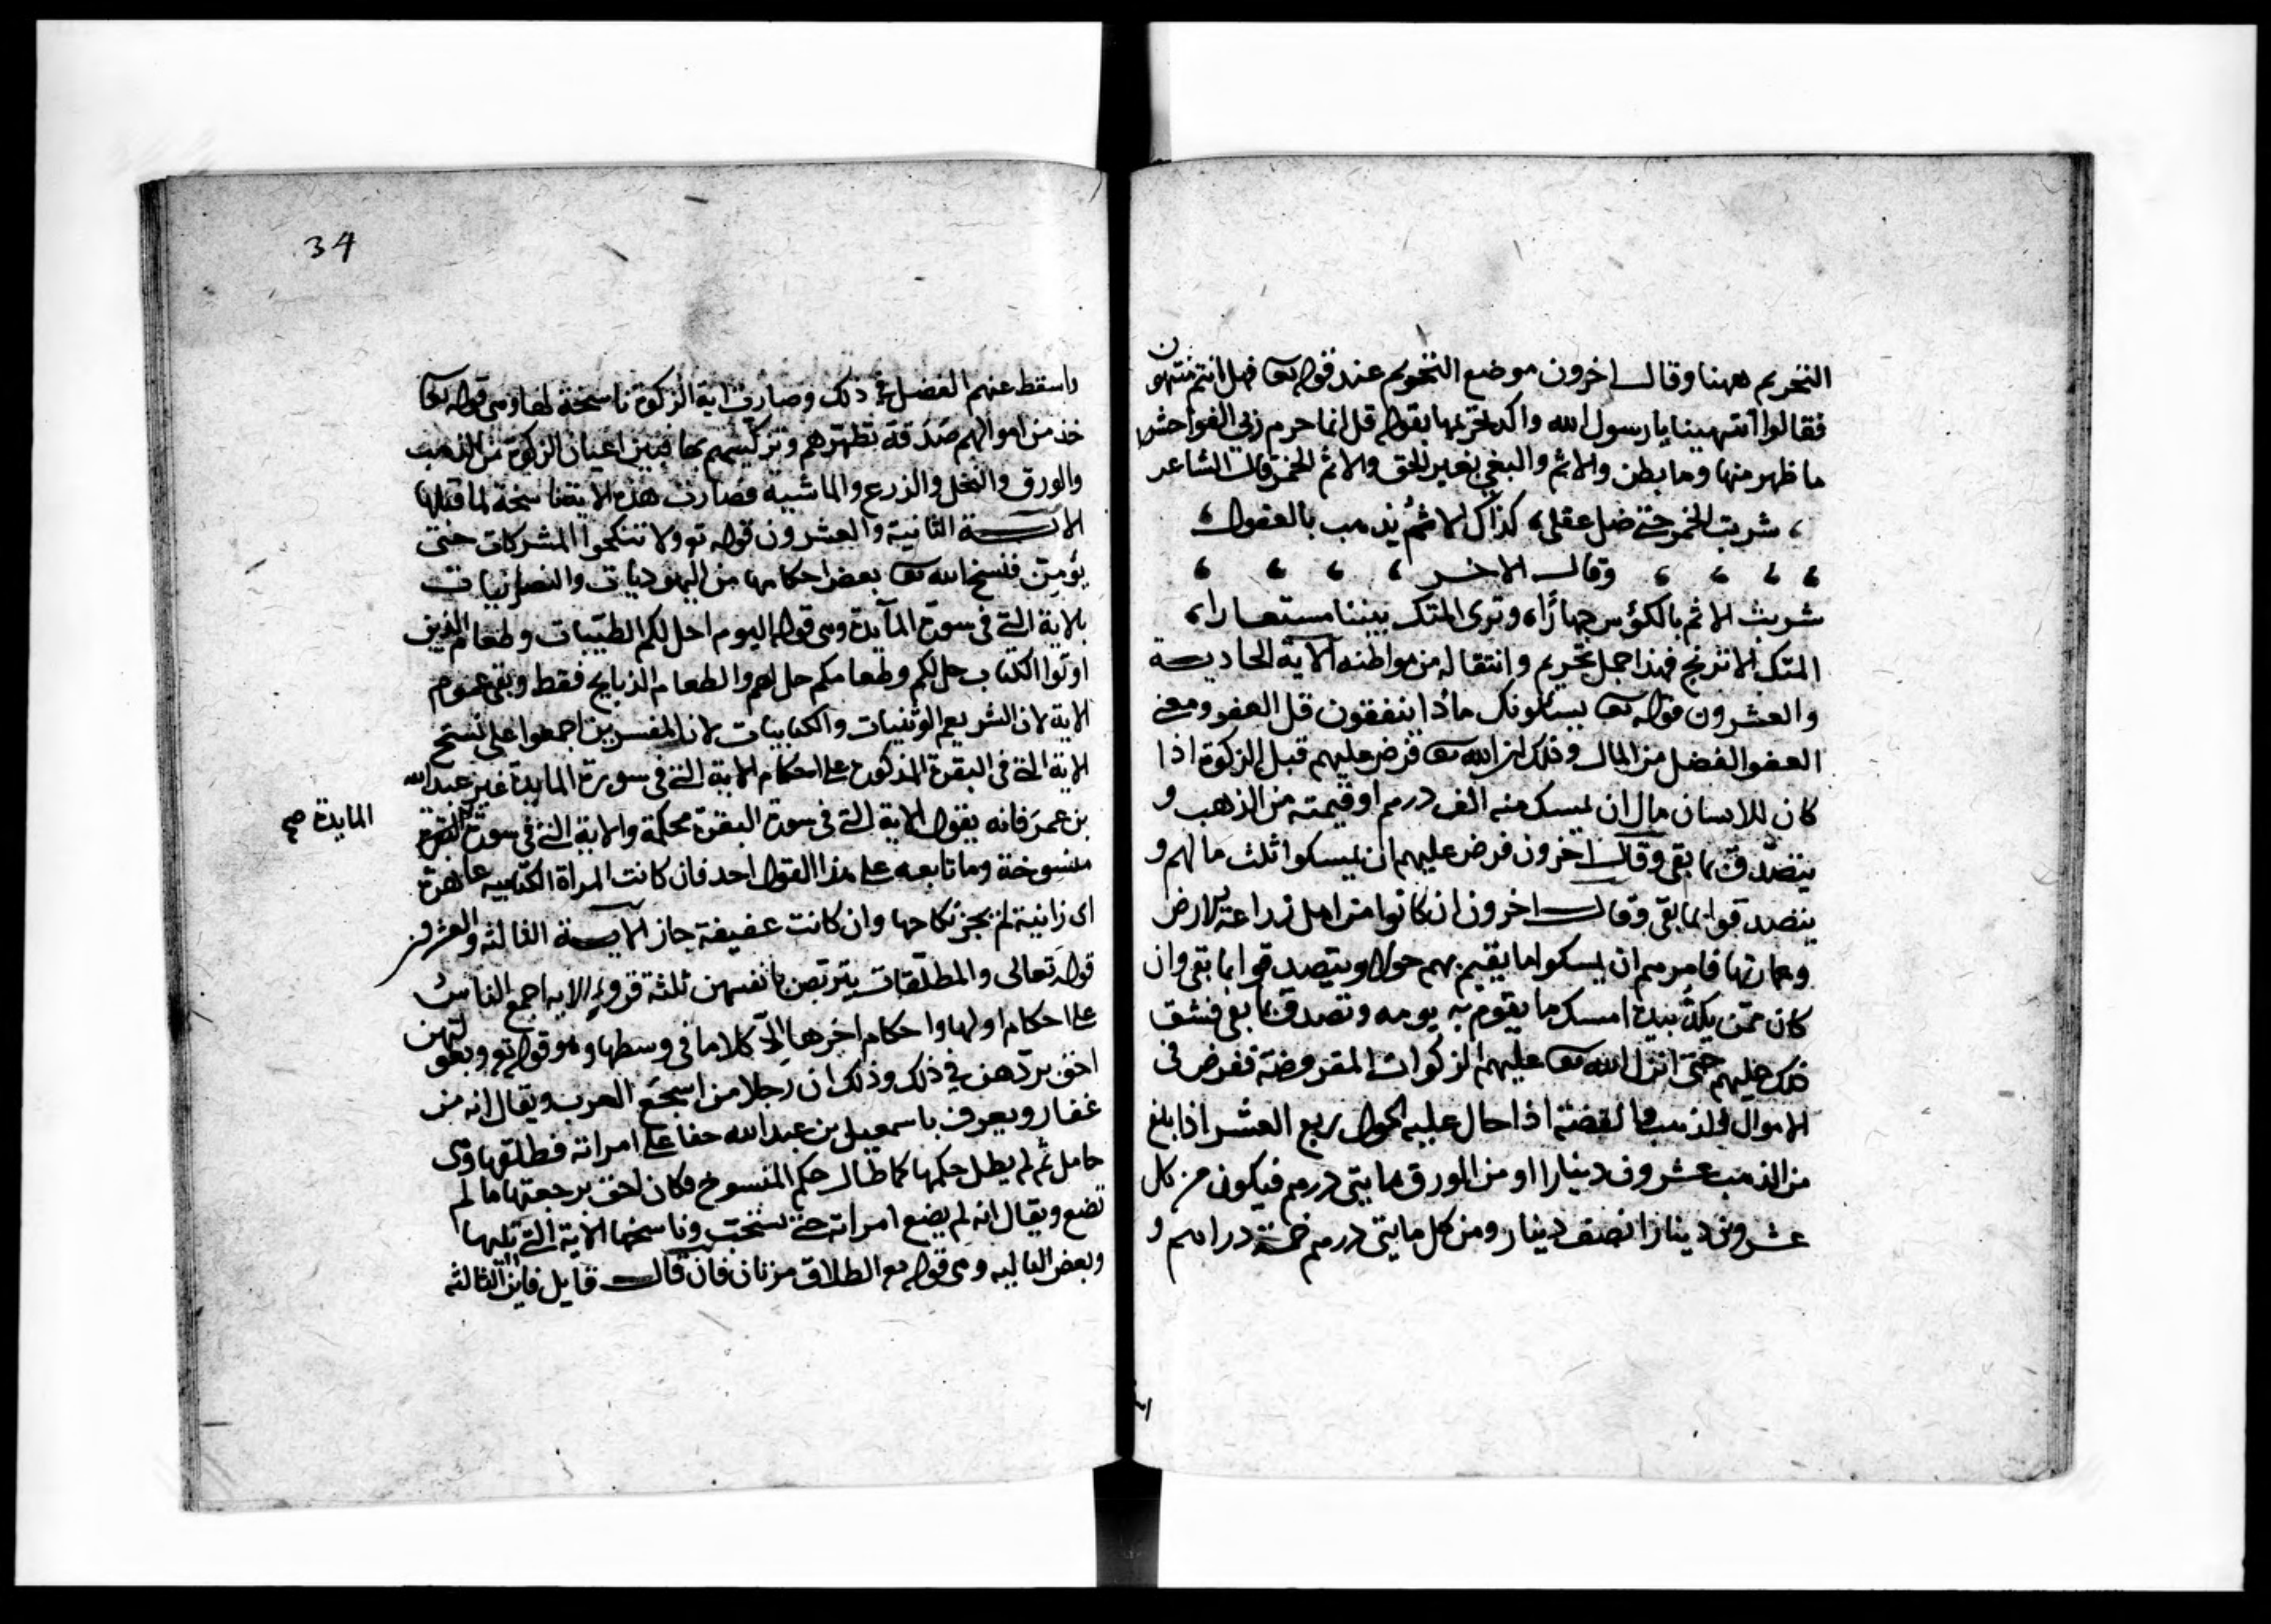 التحريم ههنا وقال اخرون موضع التحويم عند قوله تعا فهل انتم منتهون
فقالوا انتهينا يا رسول الله واكد تحريمها بقوله قل انما حرم ربى الفواحش
ما ظهر منها وما بطن والاثم والبغى بغير الحق والاثم الخمر قال الشاعر
شربت الخمر حتى ضل عقلى كذاك الاثم يذهب بالعقول
وقال الاخر
شربت الاثم بالكؤس جهارًا وترى المتك بيننا مستعارا
المتك الاترنج فهذا جمل تحريم وانتقاله من مواطنه الاية الحادية
والعشرون قوله تعا يسئلونك ماذا ينفقون قل العفو ومعنى
العفو الفضل من المال وذلك ان الله تعا فرض عليهم قبل الزكوة اذا
كان للانسان مال ان يمسك منه الف درهم او قيمته من الذهب و
يتصدّق بما بقى وقال اخرون فرض عليهم ان يمسكوا ثلث مالهم و
يتصدقوا بما بقى وقال اخرون ان كانوا من اهل زراعة الارض
وعمارتها فامرهم ان يمسكوا ما يقيم بهم حولا ويتصدقوا بما بقى وان
كان ممن يكدّ بيده امسك ما يقوم به يومه وتصدق بما بقى فشق
ذلك عليهم حتى انزل الله تعا عليهم الزكوات المفروضة ففرض فى
الاموال والذهب والفضة اذا حال عليه الحول ربع العشر اذا بلغ
من الذهب عشرون دينارا او من الورق مايتى درهم فيكون من كل
عشرون دينارا نصف دينار ومن كل مايتى درهم خمسة دراهم و
34
واسقط عنهم الفضل فى ذلك وصارت اية الزكوة ناسخة لها وهى قوله تعا
خذ من اموالهم صدقة تطهرهم وتزكيهم بها فبين اعيان الزكوة من الذهب
والورق والنخل والزرع والماشية فصارت هذه الاية ناسخة لما قبلها
الاية الثانية والعشرون قوله تع ولا تنكحوا المشركات حتى
يؤمن فنسخ الله تعا بعض احكامها من اليهوديات والنصرانيات
بالاية التى فى سورة المآيدة وهى قوله اليوم احل لكم الطيبات وطعام الذين
اوتوا الكتاب حل لكم وطعامكم حل لهم والطعام الذبايح فقط وبقى عموم
الاية لان الشر يعم الوثنيات والكتابيات لان المفسرين اجمعوا على نسخ
الاية التى فى البقرة المذكورة على احكام الاية التى فى سورة المايدة غير عبد الله
بن عمر فانه يقول الاية التى فى سورة البقرة محكمة والاية التى فى سورة البقرة
المايدة صح
منسوخة وما تابعه على هذا القول احد فان كانت المراة الكتابيه عاهرة
اى زانية لم يجز نكاحها وان كانت عفيفة جاز الاية الثالثة والعشرون
قوله تعالى والمطلّقات يتربصن بانفسهن ثلثة قروء الايه اجمع الناس
على احكام اولها واحكام اخرها الّا كلاما فى وسطها وهو قوله تع وبعولتهن
احق بردّهن فى ذلك وذلك ان رجلا من اشجع العرب ويقال انه من
غفار ويعرف باسمعيل بن عبد الله حفا على امراته فطلقها وهى
حامل ثم لم يطل حكمها كما طال حكم المنسوخ فكان احق برجعتها ما لم
تضع ويقال انه لم يضع امراته حتى نسخت وناسخها الاية التى تليها
وبعض الثاليه وهى قوله تع الطلاق مرتان فان قال قايل فاين الثالثه